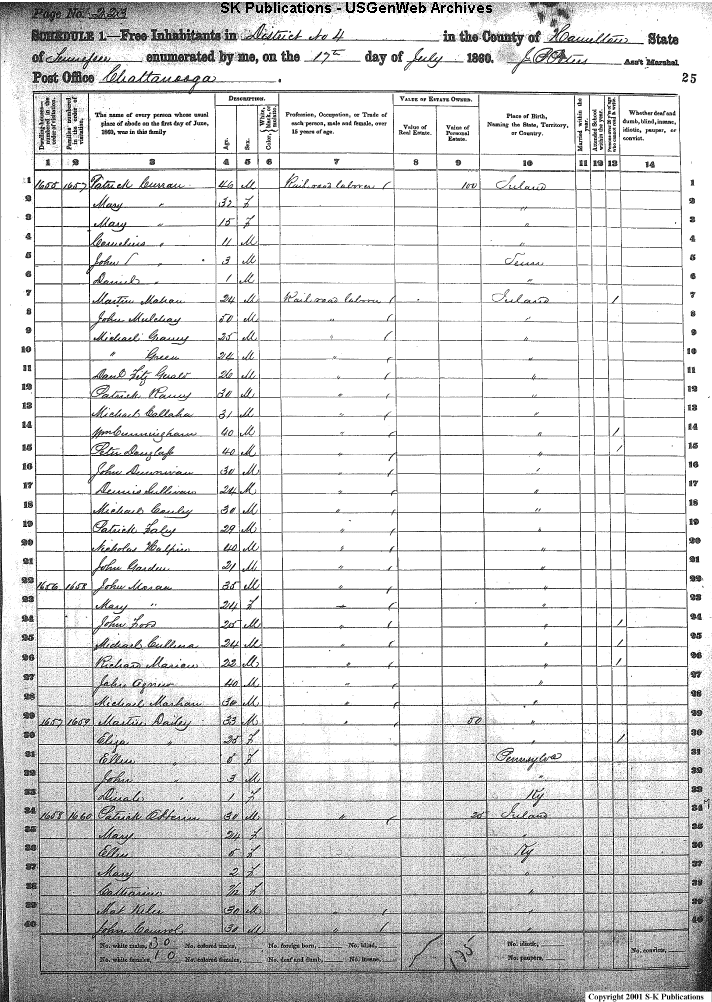 SK Publications - USGenWeb Archives
Page No. 223
SCHEDULE 1.—Free Inhabitants in District No 4 in the County of Hamilton State
of Tennessee enumerated by me, on the 17th day of July 1860. Ass't Marshal.
Post Office Chattanooga . 25
Dwelling-houses—numbered in the order of visitation.
Families numbered in the order of visitation.
The name of every person whose usual place of abode on the first day of June, 1860, was in this family
DESCRIPTION.
Age.
Sex.
Color, White, black, or mulatto.
Profession, Occupation, or Trade of each person, male and female, over 15 years of age.
VALUE OF ESTATE OWNED.
Value of Real Estate.
Value of Personal Estate.
Place of Birth, Naming the State, Territory, or Country.
Married within the year.
Attended School within the year.
Persons over 20 y'rs of age who cannot read & write.
Whether deaf and dumb, blind, insane, idiotic, pauper, or convict.
1 2 3 4 5 6 7 8 9 10 11 12 13 14
1 1655 1657 Patrick Curran 46 M Rail road laborer 100 Ireland 1
2 Mary " 32 F " 2
3 Mary " 15 F " 3
4 Cornelius " 11 M " 4
5 John " 3 M Tenn 5
6 Daniel " 1 M " 6
7 Martin Mahan 24 M Rail road laborer Ireland / 7
8 John Mulchay 50 M " 8
9 Michael 25 M " " 9
10 " Green 24 M " " 10
11 Danl Fitz Gerald 26 M " " 11
12 Patrick 30 M " " 12
13 Michael Callaha 31 M " " 13
14 Wm Cunningham 40 M " " / 14
15 Peter Douglass 40 M " " / 15
16 John 30 M " " 16
17 Dennis Sullivan 24 M " " 17
18 Michael 30 M " " 18
19 Patrick Foley 29 M " " 19
20 Nicholas Halpin 40 M " " 20
21 John Garden 21 M " " 21
22 1656 1658 John Moran 35 M " " 22
23 Mary " 24 F " 23
24 John 25 M " " / 24
25 Michael 24 M " " / 25
26 Richard Marion 22 M " " / 26
27 John Agnew 40 M " " 27
28 Michael 30 M " " 28
29 1657 1659 Martin Dailey 33 M " 50 " 29
30 Eliza " 25 F " / 30
31 Ellen " 5 F Pennsylva 31
32 John " 3 M " 32
33 " 1 F Ky 33
34 1658 1660 Patrick 30 M " 25 Ireland 34
35 Mary " 24 F " 35
36 Ellen " 5 F Ky 36
37 Mary " 2 F " 37
38 Catharine " F " 38
39 Mat 30 M " " 39
40 John 30 M " " 40
No. white males, 30 No. colored males, No. foreign born, No. blind, 175 No. idiotic, No. convicts,
No. white females, 10 No. colored females, No. deaf and dumb, No. insane, No. paupers,
Copyright 2001 S-K Publications